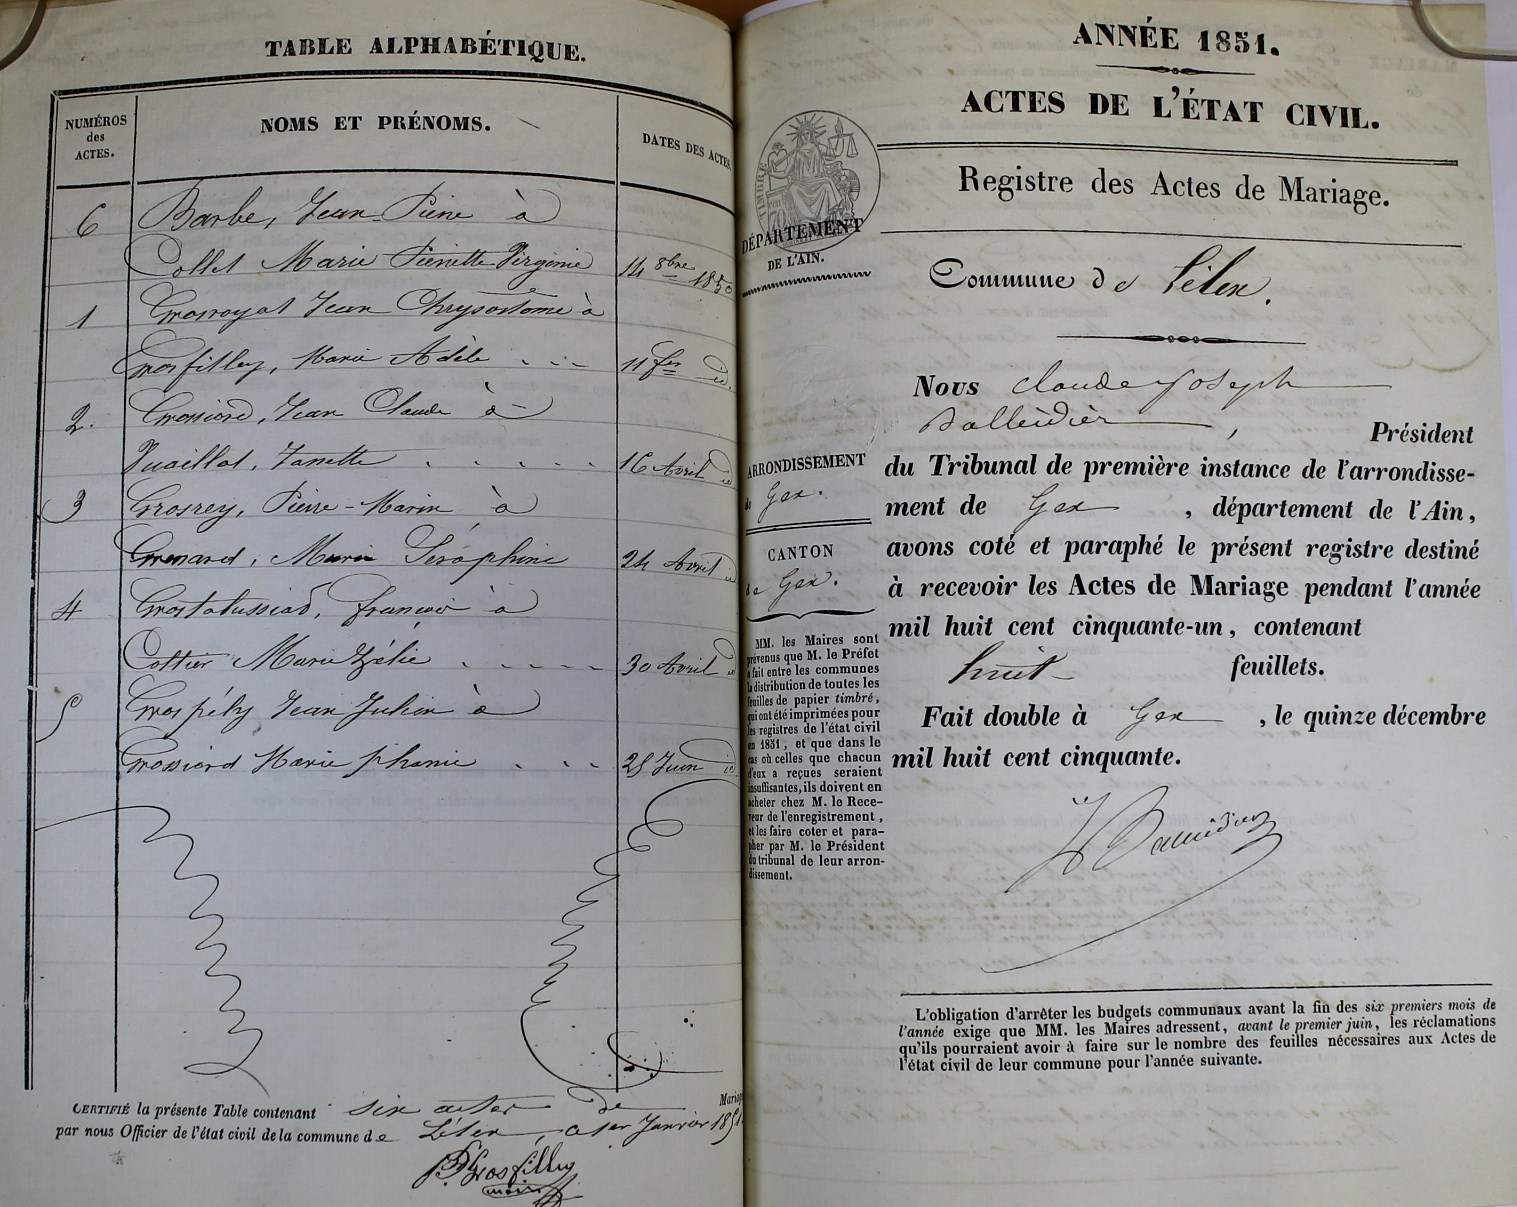 TABLE ALPHABÉTIQUE.
NUMÉROS
des
ACTES.
NOMS ET PRÉNOMS.
DATES DES ACTES.
6 Barbe, Jean-Pierre à
Collet Marie Pierrette Virginie 14 8bre 1850
1 Grosroyat Jean Chrysostome à
Grosfilley, Marie Adèle . . . 11 fer id.
2. Grossiord, Jean Claude à
Vuaillat, Janette . . . . . 16 Avril id
3 Grosrey, Pierre-Marin à
Grenard, Marie Séraphine 24 Avril id
4 François à
Cottier Marie Zélie . . . . . 30 Avril id
5 Jean Julien à
Grossiord Marie phanie . . . 25 Juin id
CERTIFIÉ la présente Table contenant six actes de Mariage
par nous Officier de l'état civil de la commune de Lélex, a 1er Janvier 1851
Grosfilley
maire
ANNÉE 1851.
ACTES DE L'ÉTAT CIVIL.
TIMBRE
DÉPARTEMENT
DE L'AIN.
Registre des Actes de Mariage.
Commune de Lélex.
ARRONDISSEMENT
de Gex.
CANTON
de Gex.
MM. les Maires sont
prévenus que M. le Préfet
a fait entre les communes
la distribution de toutes les
feuilles de papier timbré,
qui ont été imprimées pour
les registres de l'état civil
en 1851, et que dans le
cas où celles que chacun
d'eux a reçues seraient
insuffisantes, ils doivent en
acheter chez M. le Rece-
veur de l'enregistrement,
et les faire coter et para-
pher par M. le Président
du tribunal de leur arron-
dissement.
Nous Claude Joseph
Balleidier, Président
du Tribunal de première instance de l'arrondisse-
ment de Gex, département de l'Ain,
avons coté et paraphé le présent registre destiné
à recevoir les Actes de Mariage pendant l'année
mil huit cent cinquante-un, contenant
huit feuillets.
Fait double à Gex, le quinze décembre
mil huit cent cinquante.
L'obligation d'arrêter les budgets communaux avant la fin des six premiers mois de
l'année exige que MM. les Maires adressent, avant le premier juin, les réclamations
qu'ils pourraient avoir à faire sur le nombre des feuilles nécessaires aux Actes de
l'état civil de leur commune pour l'année suivante.